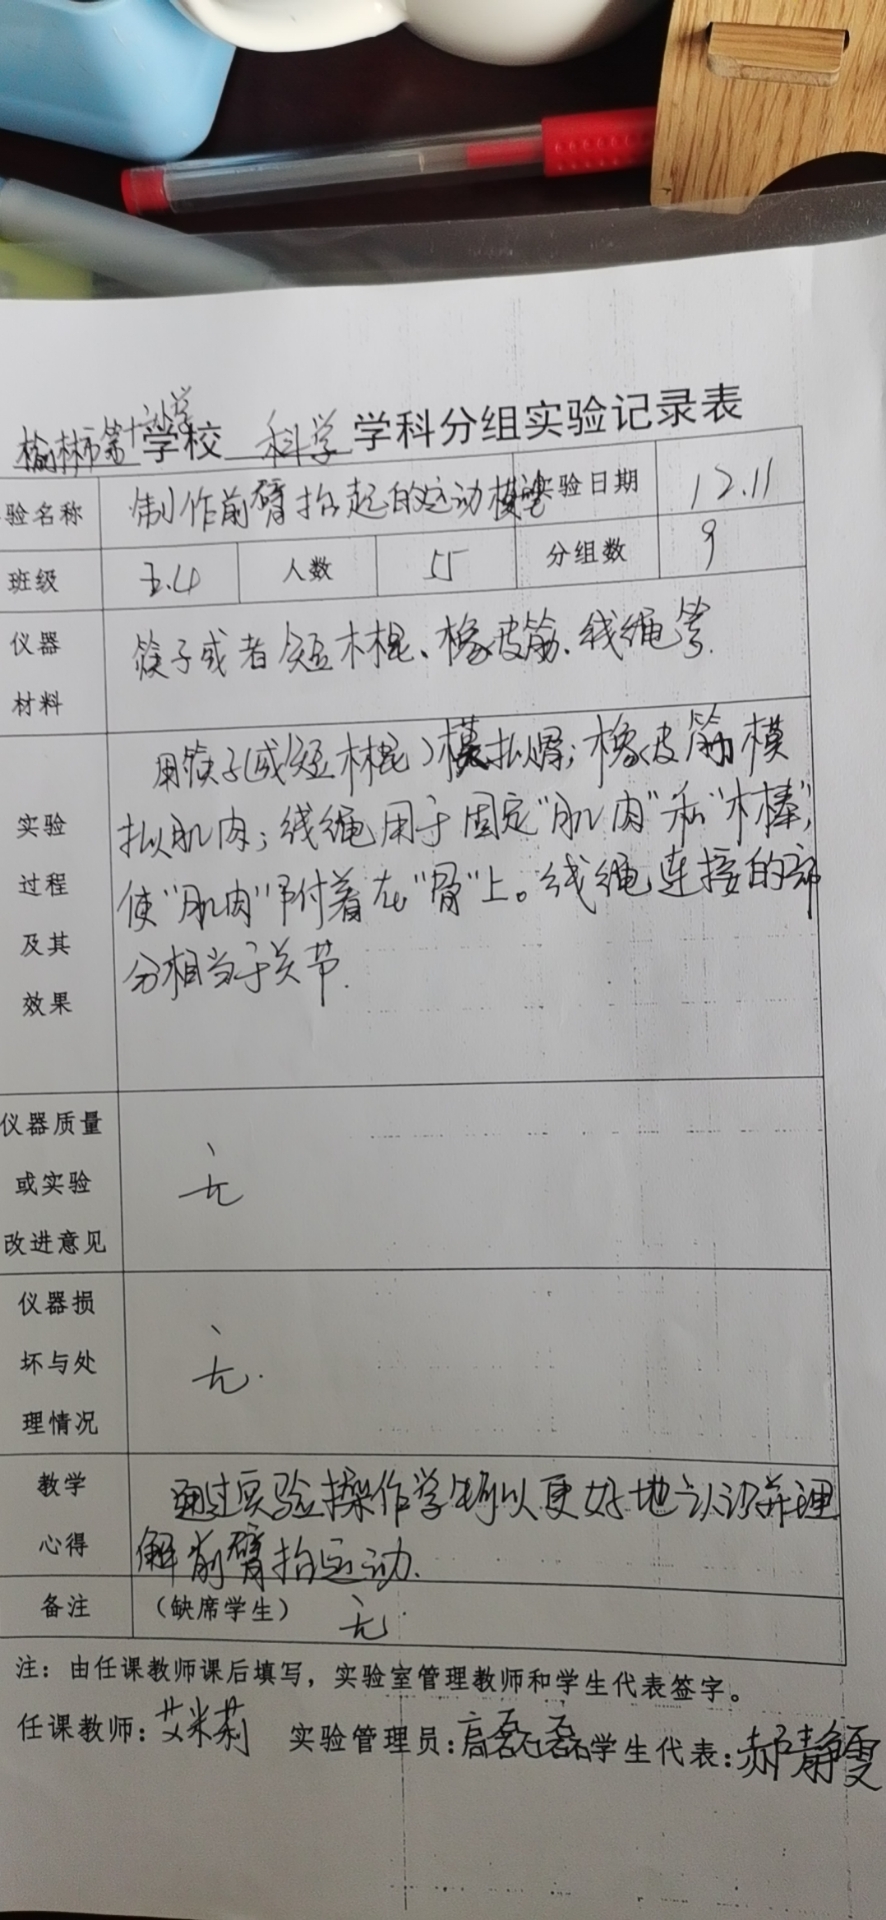 榆林市第十六小学 学校 科学 学科分组实验记录表
验名称 制作前臂抬起的运动模型 实验日期 12.11
班级 五.4 人数 55 分组数 9
仪器
材料
筷子或者短木棍、橡皮筋、线绳等.
实验
过程
及其
效果
用筷子(或短木棍)模拟骨;橡皮筋模
拟肌肉;线绳用于固定“肌肉”和“木棒”,
使“肌肉”附着在“骨”上。线绳连接的部
分相当于关节.
仪器质量
或实验
改进意见
无
仪器损
坏与处
理情况
无.
教学
心得
通过实验操作学生可以更好地认识并理
解前臂抬运动.
备注 (缺席学生) 无.
注: 由任课教师课后填写,实验室管理教师和学生代表签字。
任课教师: 艾米莉 实验管理员: 高磊磊 学生代表: 郝静雯